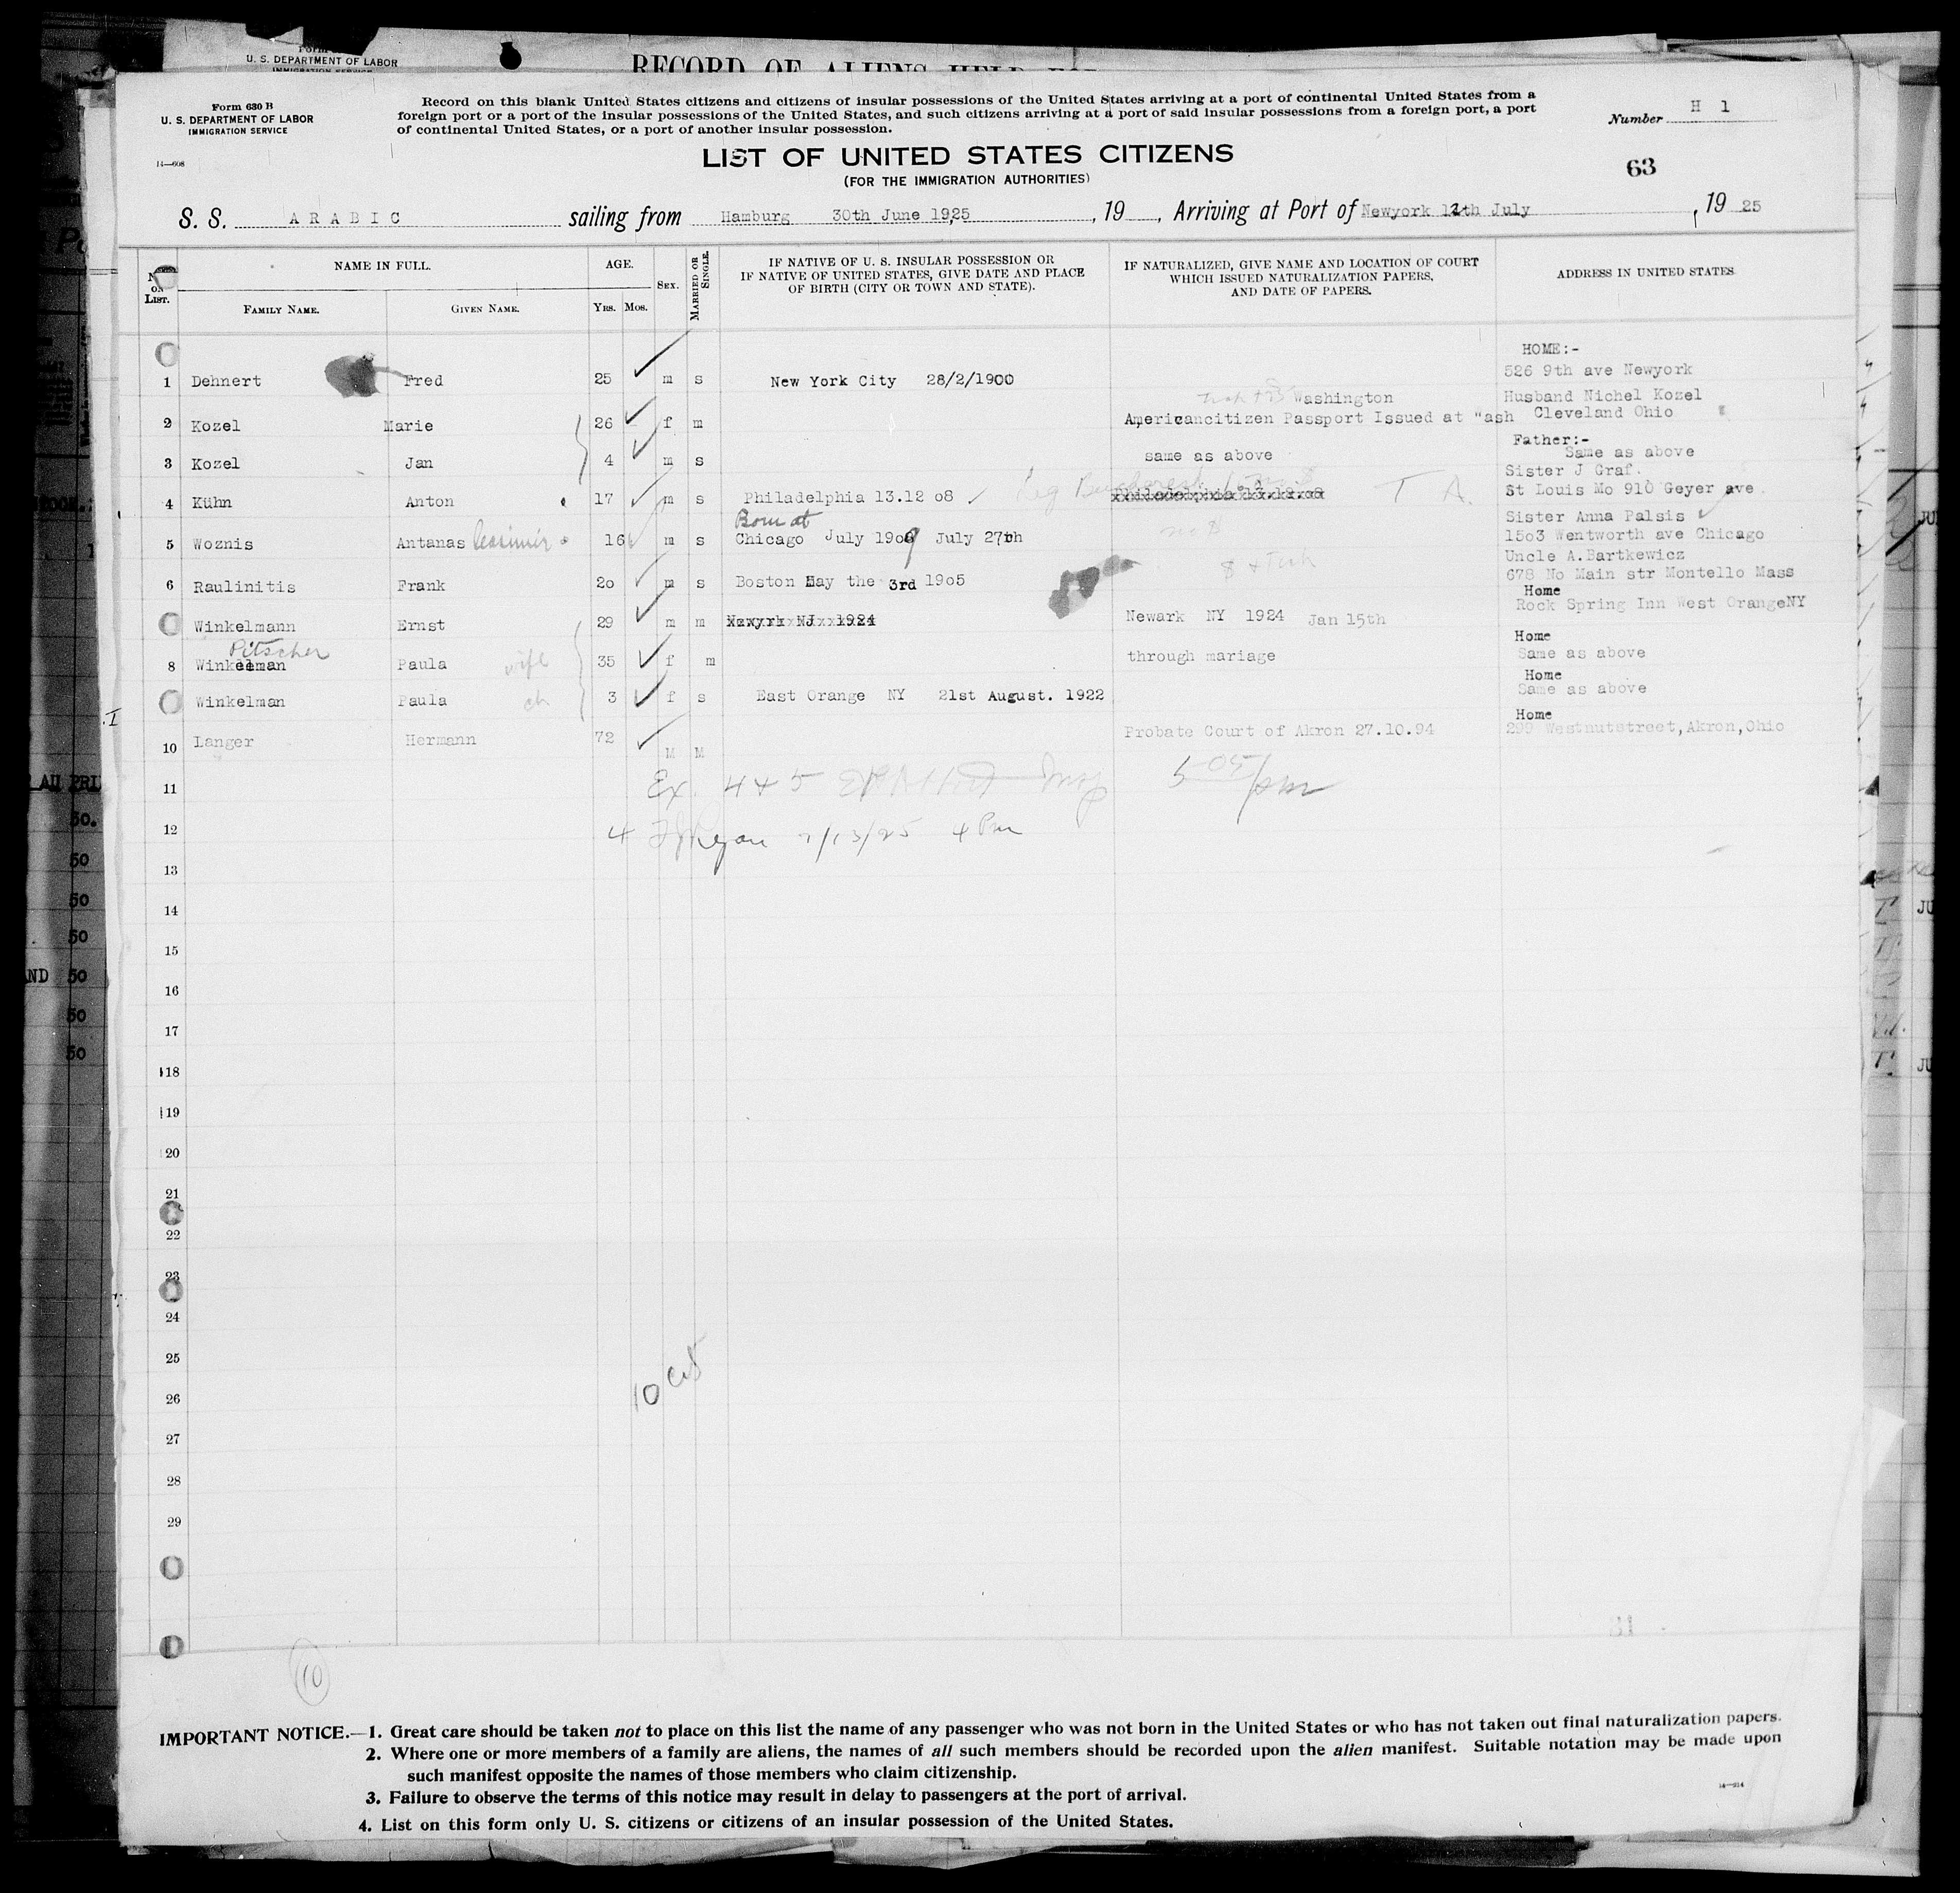 U. S. DEPARTMENT OF LABOR
RECORD OF ALIENS HELD
Form 630 B
U. S. DEPARTMENT OF LABOR
IMMIGRATION SERVICE
14—608
Record on this blank United States citizens and citizens of insular possessions of the United States arriving at a port of continental United States from a
foreign port or a port of the insular possessions of the United States, and such citizens arriving at a port of said insular possessions from a foreign port, a port
of continental United States, or a port of another insular possession.
Number H 1
LIST OF UNITED STATES CITIZENS
(FOR THE IMMIGRATION AUTHORITIES)
63
S. S. ARABIC sailing from Hamburg 30th June 1925, 19 , Arriving at Port of Newyork 12th July, 19 25
No. ON LIST.
NAME IN FULL.
FAMILY NAME.
GIVEN NAME.
AGE.
YRS. MOS.
SEX.
MARRIED OR SINGLE.
IF NATIVE OF U. S. INSULAR POSSESSION OR
IF NATIVE OF UNITED STATES, GIVE DATE AND PLACE
OF BIRTH (CITY OR TOWN AND STATE).
IF NATURALIZED, GIVE NAME AND LOCATION OF COURT
WHICH ISSUED NATURALIZATION PAPERS,
AND DATE OF PAPERS.
ADDRESS IN UNITED STATES
HOME:-
1 Dehnert Fred 25 m s New York City 28/2/1900 526 9th ave Newyork
Washington Husband Nichel Kozel
2 Kozel Marie 26 f m Americancitizen Passport Issued at "ash Cleveland Ohio
Father:-
3 Kozel Jan 4 m s same as above Same as above
Sister J Graf.
4 Kühn Anton 17 m s Philadelphia 13.12 o8 T A. St Louis Mo 910 Geyer ave
Born at Sister Anna Palsis
5 Woznis Antanas Casimir 16 m s Chicago July 1909 July 27th 15o3 Wentworth ave Chicago
Uncle A.Bartkewicz
6 Raulinitis Frank 2o m s Boston May the 3rd 19o5 678 No Main str Montello Mass
Home
Winkelmann Ernst 29 m m Newyrk NJ 1924 Newark NY 1924 Jan 15th Rock Spring Inn West OrangeNY
Pitscher Home
8 Winkelman Paula wife 35 f m through mariage Same as above
Home
Winkelman Paula ch 3 f s East Orange NY 21st August. 1922 Same as above
Home
10 Langer Hermann 72 M M Probate Court of Akron 27.10.94 299 Westnutstreet,Akron,Ohio
11 Ex. 4 + 5 5 05/pm
12 4 Ryan 7/13/25 4 Pm
13
14
15
16
17
18
19
20
21
22
23
24
25
26
27
28
29
10 cit
31
10
IMPORTANT NOTICE.—1. Great care should be taken not to place on this list the name of any passenger who was not born in the United States or who has not taken out final naturalization papers.
2. Where one or more members of a family are aliens, the names of all such members should be recorded upon the alien manifest. Suitable notation may be made upon
such manifest opposite the names of those members who claim citizenship.
3. Failure to observe the terms of this notice may result in delay to passengers at the port of arrival.
4. List on this form only U. S. citizens or citizens of an insular possession of the United States.
14—214